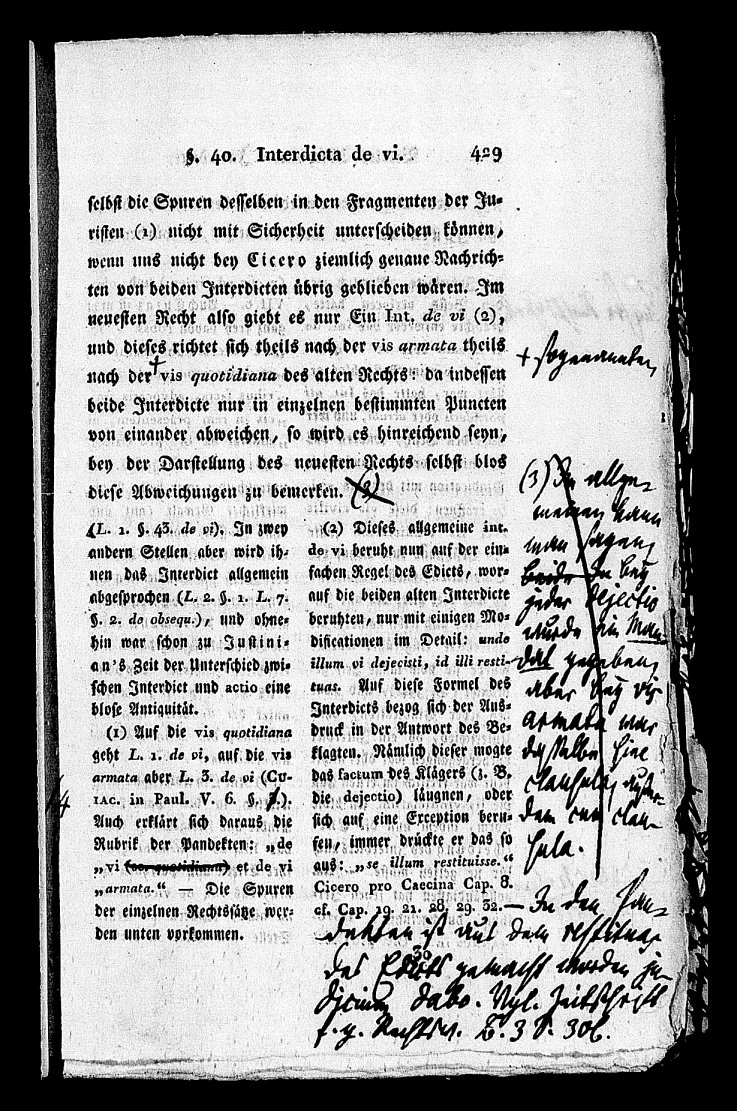 §. 40. Interdicta de vi. 429
selbst die Spuren desselben in den Fragmenten der Ju-
risten (1) nicht mit Sicherheit unterscheiden können,
wenn uns nicht bey Cicero ziemlich genaue Nachrich-
ten von beiden Interdicten übrig geblieben wären. Im
neuesten Recht also giebt es nur Ein Int. de vi (2),
und dieses richtet sich theils nach der vis armata theils
nach der + vis quotidiana des alten Rechts: da indessen
beide Interdicte nur in einzelnen bestimmten Puncten
von einander abweichen, so wird es hinreichend seyn,
bey der Darstellung des neuesten Rechts selbst blos
diese Abweichungen zu bemerken. (3)
+ sogenannten
(3) Im allge-
meinen kann
man sagen,
beide In bey
jeder dejectio
wurde ein Man-
dat gegeben,
aber bey vis
armata war
dasselbe sine
clausula, außer-
dem cum clau-
sula.
(L. 1. §. 43. de vi). In zwey
andern Stellen aber wird ih-
nen das Interdict allgemein
abgesprochen (L. 2. §. 1. L. 7.
§. 2. de obsequ.), und ohne-
hin war schon zu Justini-
an's Zeit der Unterschied zwi-
schen Interdict und actio eine
blose Antiquität.
(1) Auf die vis quotidiana
geht L. 1. de vi, auf die vis
armata aber L. 3. de vi (CU-
IAC. in Paul. V. 6. §. 4.).
Auch erklärt sich daraus die
Rubrik der Pandekten: „de
„vi (sc. quotidiana) et de vi
„armata.“ — Die Spuren
der einzelnen Rechtssätze wer-
den unten vorkommen.
(2) Dieses allgemeine int.
de vi beruht nun auf der ein-
fachen Regel des Edicts, wor-
auf die beiden alten Interdicte
beruhten, nur mit einigen Mo-
dificationen im Detail: unde
illum vi dejecisti, id illi resti-
tuas. Auf diese Formel des
Interdicts bezog sich der Aus-
druck in der Antwort des Be-
klagten. Nämlich dieser mogte
das factum des Klägers (z. B.
die dejectio) läugnen, oder
sich auf eine Exception beru-
fen, immer drückte er das so
aus: „se illum restituisse.“
Cicero pro Caecina Cap. 8.
cf. Cap. 19. 21. 28. 29. 32. — In den Pan-
dekten ist aus dem restituas
des Edicts gemacht worden ju-
dicium dabo. Vgl. Zeitschrift
f. g. Rechtsw. B. 3 S. 306.